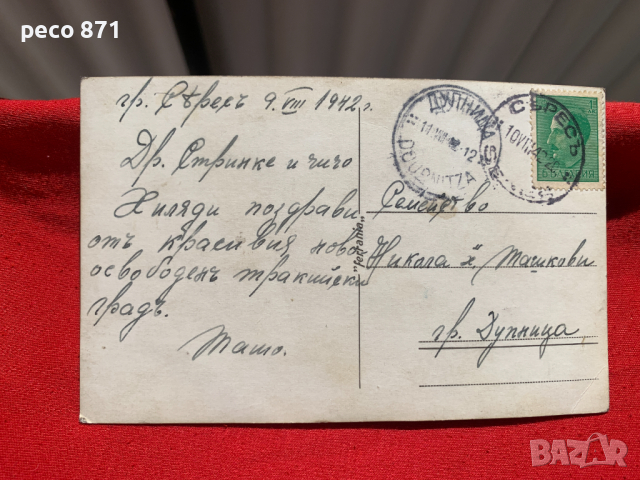 peco 871
гр. Сѣресъ 9. VIII 1942 г.
Др. Стринке и чичо
Хиляди поздрави
отъ красивия ново
освободенъ тракийски
градъ.
Ташо.
"ferrania"
ДУПНИЦА
DOUPNITZA
СѢРЕСЪ
Семейство
Никола х. Ташкови
гр. Дупница
BAZAR
bg